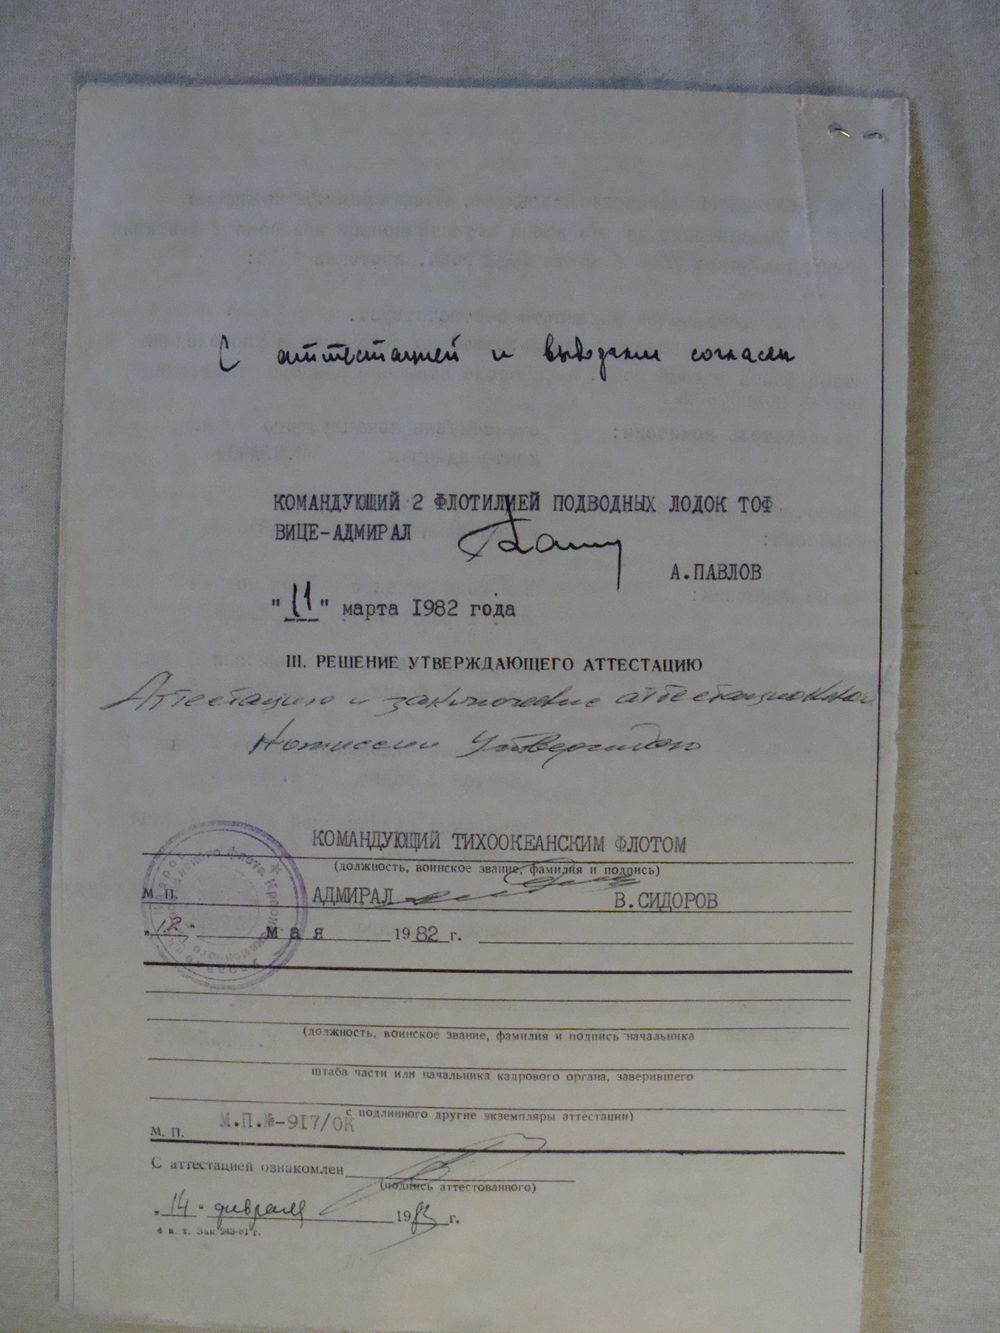 С аттестацией и выводами согласен
КОМАНДУЮЩИЙ 2 ФЛОТИЛИЕЙ ПОДВОДНЫХ ЛОДОК ТОФ
ВИЦЕ-АДМИРАЛ
А.ПАВЛОВ
"11" марта 1982 года
III. РЕШЕНИЕ УТВЕРЖДАЮЩЕГО АТТЕСТАЦИЮ
Аттестацию и заключение аттестационной
комиссии утверждаю
КОМАНДУЮЩИЙ ТИХООКЕАНСКИМ ФЛОТОМ
(должность, воинское звание, фамилия и подпись)
М. П. АДМИРАЛ В.СИДОРОВ
"12" мая 1982 г.
(должность, воинское звание, фамилия и подпись начальника
штаба части или начальника кадрового органа, заверившего
с подлинного другие экземпляры аттестации)
М.П.№-917/ОК
М. П.
С аттестацией ознакомлен
(подпись аттестованного)
"14" февраля 1983 г.
4 в. т. Зак. 243-81 г.